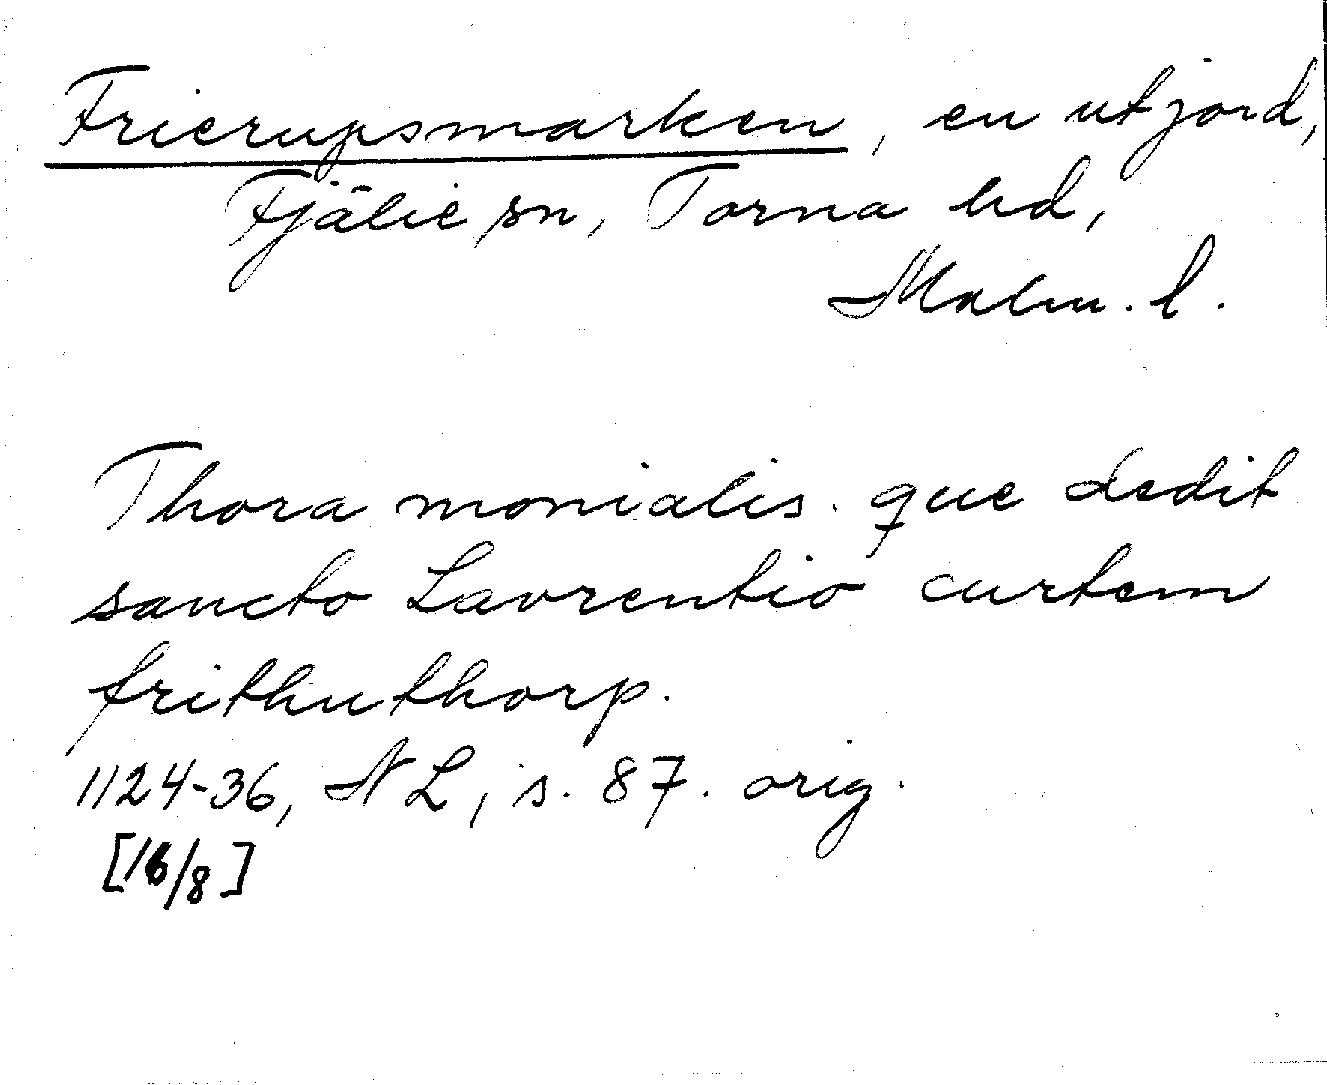 Frierupsmarken, en utjord,
Fjälie sn, Torna hd,
Malm. l.
Thora monialis. que dedit
sancto Lavrentio curtem
frithuthorp.
1124-36, NL, s. 87. orig.
[16/8]